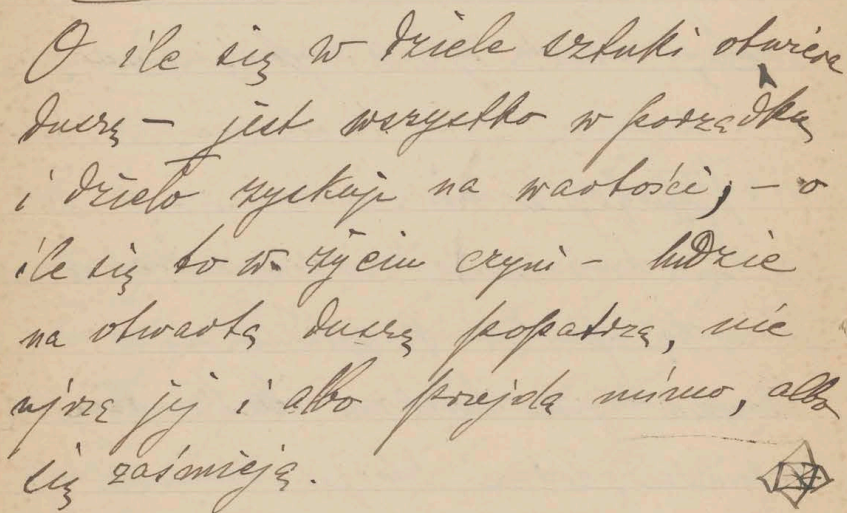 O ile się w dziele sztuki otwiera
duszę – jest wszystko w porządku
i dzieło zyskuje na wartości; – o
ile się to w życiu czyni – ludzie
na otwartą duszę popatrzą, nie
ujrzą jej i albo przejdą mimo, albo
się zaśmieją.